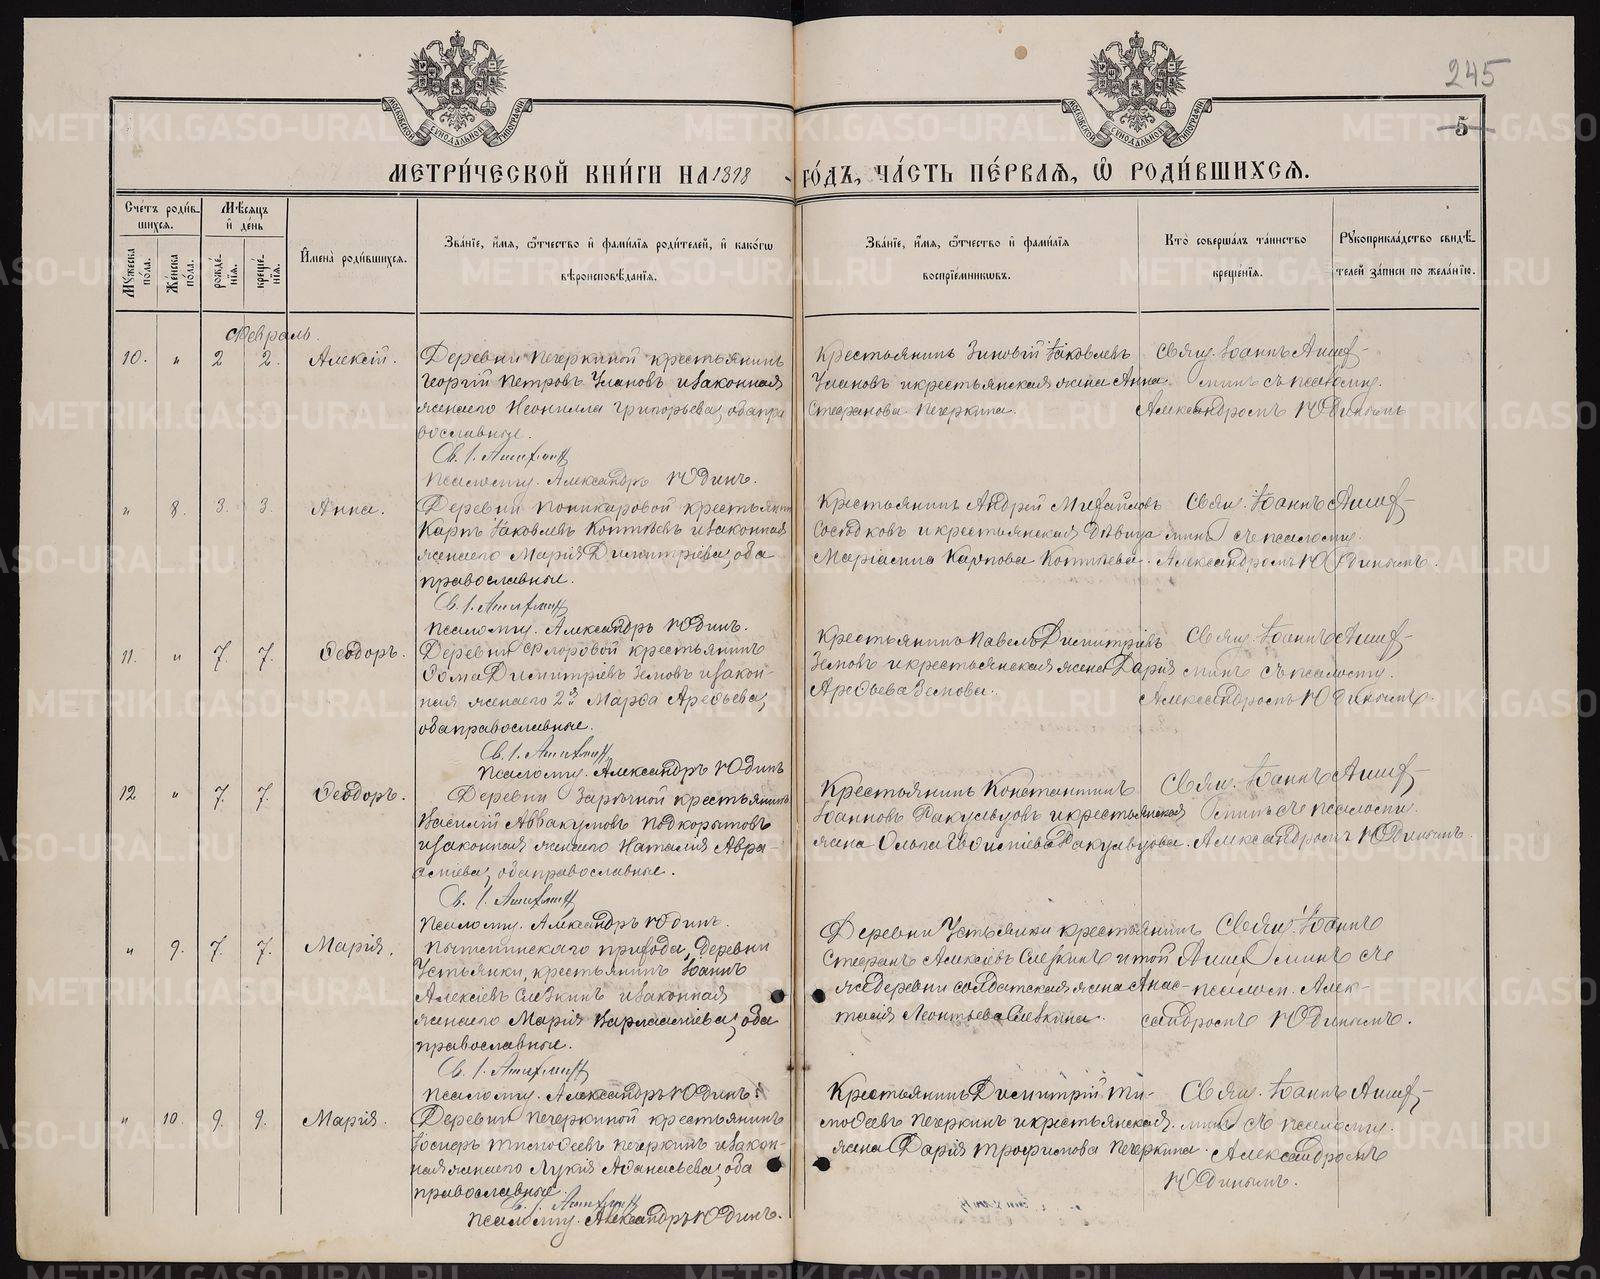 245
5
МОСКОВСКОЙ СѴНОДАЛЬНОЙ ТИПОГРАФІИ
МОСКОВСКОЙ СѴНОДАЛЬНОЙ ТИПОГРАФІИ
МЕТРИ́ЧЕСКОЙ КНИ́ГИ НА 1898 ГО́ДЪ, ЧА́СТЬ ПЕ́РВАѦ, Ѽ РОДИ́ВШИХСѦ.
Сче́тъ роди́вшихсѧ.
Мꙋ́жеска по́ла.
Же́нска по́ла.
Мѣ́сѧцъ и҆ де́нь
рожде́нїѧ.
креще́нїѧ.
И҆мена̀ роди́вшихсѧ.
Зва́нїе, и҆́мѧ, ѻ҆́тчество и҆ фами́лїѧ роди́телей, и҆ како́гѡ
вѣроисповѣ́данїѧ.
Зва́нїе, и҆́мѧ, ѻ҆́тчество и҆ фами́лїѧ
воспрїе́мникѡвъ.
Кто̀ соверша́лъ та́инство
креще́нїѧ.
Рꙋкоприкла́дство свидѣ́-
телей за́писи по жела́нїю.
Февраль.
10. " 2 2. Алексій.
Деревни Печеркиной крестьянинъ
Георгій Петровъ Улановъ и законная
жена его Неонилла Григорьева, оба пра
вославные.
Св. І. Ашихминъ
Псаломщ. Александръ Юдинъ.
Крестьянинъ Зиновій Іаковлевъ
Улановъ и крестьянская жена Анна
Стефанова Печеркина.
Свящ. Іоаннъ Аших-
минъ съ псаломщ.
Александромъ Юдинымъ
" 8. 3. 3. Анна.
Деревни Поникаровой крестьянин
Карпъ Іаковлевъ Коптяевъ и законная
жена его Марія Димитріева, оба
православные.
Св. І. Ашихминъ
Псаломщ. Александръ Юдинъ.
Крестьянинъ Андрей Михайловъ
и крестьянская дѣвица
Карпова Коптяева.
Свящ. Іоаннъ Аших-
минъ съ псаломщ.
Александромъ Юдинымъ.
11. " 7. 7. Ѳеодоръ.
Деревни Флоровой крестьянинъ
Ѳома Димитріевъ Земовъ и закон-
ная жена его 2я Марѳа Арефьева,
оба православные.
Св. І. Ашихминъ
Псаломщ. Александръ Юдинъ
Крестьянинъ Павелъ Димитріевъ
Земовъ и крестьянская жена Дарія
Арефьева Земова.
Свящ. Іоаннъ Аших-
минъ съ псаломщ.
Александромъ Юдинымъ.
12 " 7. 7. Ѳеодоръ.
Деревни Зарѣчной крестьянинъ
Василій Аввакумовъ Подкорытовъ
и законная жена его Наталія Авра
аміева, оба православные.
Св. І. Ашихминъ
Псаломщ. Александръ Юдинъ.
Крестьянинъ Константинъ
Іоанновъ Ракульцовъ и крестьянская
жена Ольга Ракульцова.
Свящ. Іоаннъ Аших-
минъ съ псаломщ.
Александромъ Юдинымъ.
" 9. 7. 7. Марія.
прихода, деревни
Устьянки, крестьянинъ Іоаннъ
Алексіевъ Слѣзкинъ и законная
жена его Марія Варлааміева, оба
православные.
Св. І. Ашихминъ
Псаломщ. Александръ Юдинъ.
Деревни Устьянки крестьянинъ
Стефанъ Алексіевъ Слѣзкинъ и той
же деревни солдатская жена Анас-
тасія Леонтьева Слѣзкина.
Свящ. Іоаннъ
Ашихминъ съ
псаломщ. Алек-
сандромъ Юдинымъ.
" 10. 9. 9. Марія.
Деревни Печеркиной крестьянинъ
Іосифъ Тимоѳеевъ Печеркинъ и закон-
ная жена его Лукія Аѳанасьева, оба
православные.
Св. І. Ашихминъ
Псаломщ. Александръ Юдинъ.
Крестьянинъ Димитрій Ти-
моѳеевъ Печеркинъ и крестьянская
жена Дарія Трофимова Печеркина.
Свящ. Іоаннъ Аших-
минъ съ псаломщ.
Александромъ
Юдинымъ.
METRIKI.GASO-URAL.RU